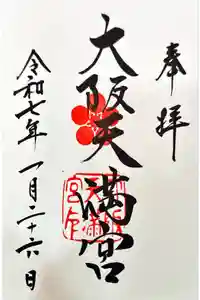 奉拝
大阪天満宮
令和七年一月二十六日